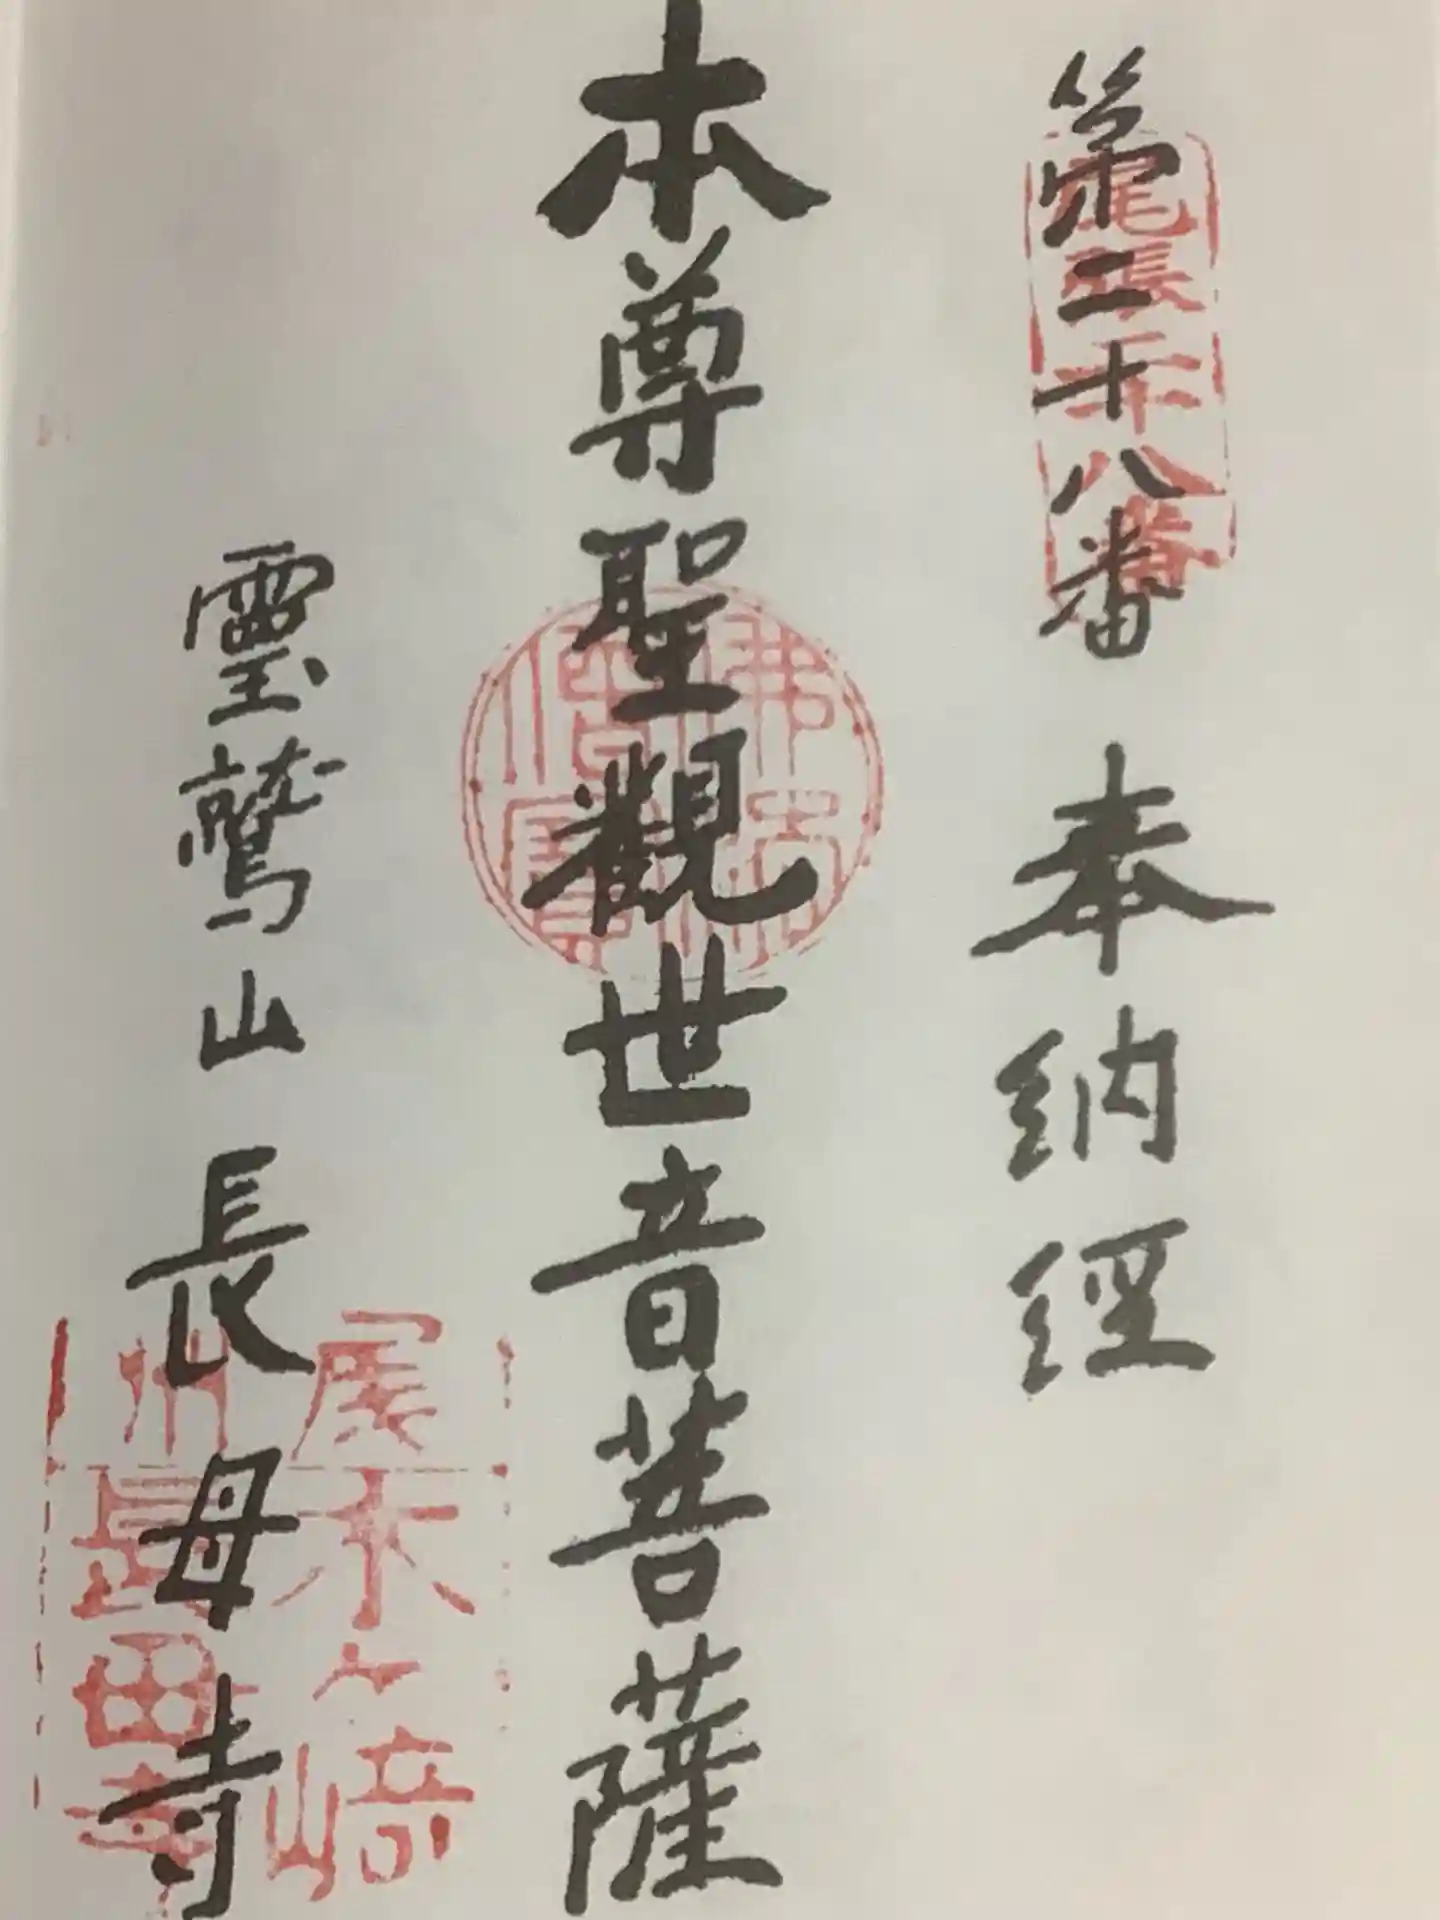 第二十八番 奉納經
尾張二十八番
本尊聖觀世音菩薩
佛法僧寶
靈鷲山 長母寺
尾州木ヶ崎長母寺